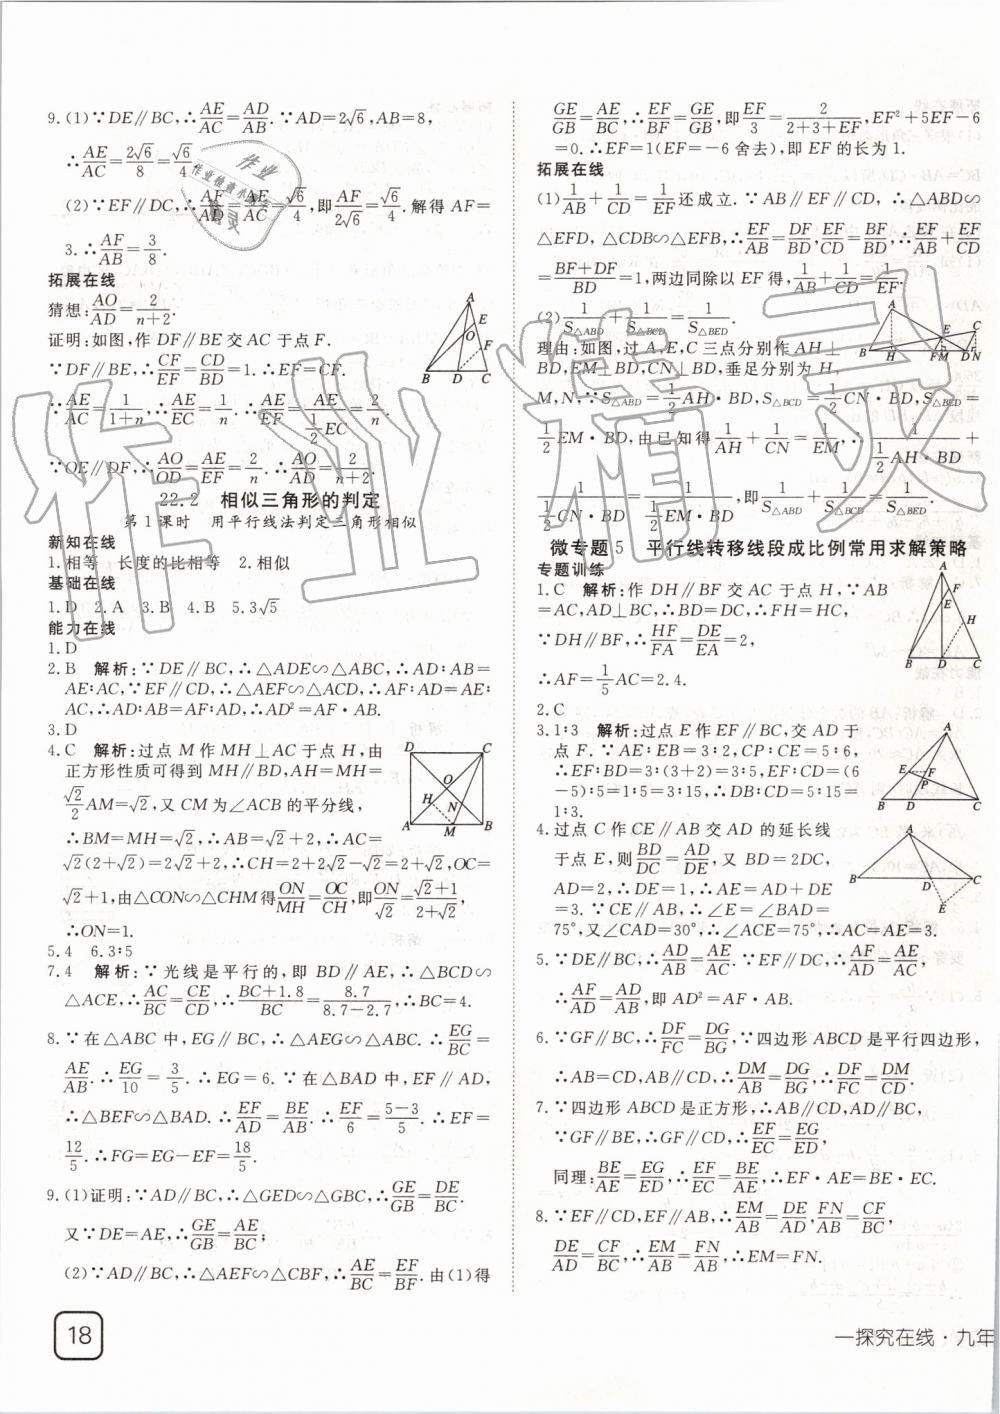 9.(1)∵DE∥BC,∴AE/AC=AD/AB.∵AD=2√6,AB=8,
∴AE/AC=2√6/8=√6/4.
(2)∵EF∥DC,∴AF/AD=AE/AC=√6/4,即AF/2√6=√6/4.解得 AF=
3.∴AF/AB=3/8.
拓展在线
猜想:AO/AD=2/(n+2).
证明:如图,作 DF∥BE 交 AC 于点 F.
∵DF∥BE,∴CF/EF=CD/BD=1.∴EF=CF.
∵AE/AC=1/(1+n),∴AE/EC=1/n.∴AE/EF=AE/(1/2 EC)=2/n.
∵OE∥DF,∴AO/OD=AE/EF=2/n.∴AO/AD=2/(n+2).
A E O F B D C
22.2 相似三角形的判定
第1课时 用平行线法判定三角形相似
新知在线
1.相等 长度的比相等 2.相似
基础在线
1.D 2.A 3.B 4.B 5.3√5
能力在线
1.D
2.B 解析:∵DE∥BC,∴△ADE∽△ABC,∴AD:AB=
AE:AC,∵EF∥CD,∴△AEF∽△ACD,∴AF:AD=AE:
AC,∴AD:AB=AF:AD,∴AD²=AF·AB.
3.D
4.C 解析:过点 M 作 MH⊥AC 于点 H,由
正方形性质可得到 MH∥BD,AH=MH=
√2/2AM=√2,又 CM 为∠ACB 的平分线,
∴BM=MH=√2,∴AB=√2+2,∴AC=
√2(2+√2)=2√2+2,∴CH=2+2√2-√2=2+√2,OC=
√2+1,由△CON∽△CHM 得ON/MH=OC/CH,即ON/√2=(√2+1)/(2+√2),
∴ON=1.
D C O H N A M B
5.4 6.3:5
7.4 解析:∵光线是平行的,即 BD∥AE,∴△BCD∽
△ACE,∴AC/BC=CE/CD,∴(BC+1.8)/BC=8.7/(8.7-2.7),∴BC=4.
8.∵在△ABC 中,EG∥BC,∴△AEG∽△ABC.∴EG/BC=
AE/AB.∴EG/10=3/5.∴EG=6.∵在△BAD 中,EF∥AD,
∴△BEF∽△BAD.∴EF/AD=BE/AB.∴EF/6=(5-3)/5.∴EF=
12/5.∴FG=EG-EF=18/5.
9.(1)证明:∵AD∥BC,∴△GED∽△GBC,∴GE/GB=DE/BC.
又∵DE=AE,∴GE/GB=AE/BC;
(2)∵AD∥BC,∴△AEF∽△CBF,∴AE/BC=EF/BF.由(1)得
18
GE/GB=AE/BC,∴EF/BF=GE/GB,即EF/3=2/(2+3+EF),EF²+5EF-6
=0.∴EF=1(EF=-6 舍去),即 EF 的长为 1.
拓展在线
(1)1/AB+1/CD=1/EF还成立.∵AB∥EF∥CD,∴△ABD∽
△EFD,△CDB∽△EFB,∴EF/AB=DF/BD,EF/CD=BF/BD,∴EF/AB+EF/CD
=(BF+DF)/BD=1,两边同除以 EF 得,1/AB+1/CD=1/EF.
(2)1/S△ABD+1/S△BCD=1/S△BED.
理由:如图,过 A,E,C 三点分别作 AH⊥
BD,EM⊥BD,CN⊥BD,垂足分别为 H,
M,N,∵S△ABD=1/2AH·BD,S△BCD=1/2CN·BD,S△BED=
1/2EM·BD,由已知得1/AH+1/CN=1/EM,∴1/(1/2AH·BD)+
1/(1/2CN·BD)=1/(1/2EM·BD),即1/S△ABD+1/S△BCD=1/S△BED.
A E C B H FM DN
微专题5 平行线转移线段成比例常用求解策略
专题训练
1.C 解析:作 DH∥BF 交 AC 于点 H,∵AB
=AC,AD⊥BC,∴BD=DC,∴FH=HC,
∵DH∥BF,∴HF/FA=DE/EA=2,
∴AF=1/5AC=2.4.
A F E H B D C
2.C
3.1:3 解析:过点 E 作 EF∥BC,交 AD 于
点 F.∵AE:EB=3:2,CP:CE=5:6,
∴EF:BD=3:(3+2)=3:5,EF:CD=(6
-5):5=1:5=3:15,∴DB:CD=5:15=
1:3.
A E F P B D C
4.过点 C 作 CE∥AB 交 AD 的延长线
于点 E,则BD/DC=AD/DE,又 BD=2DC,
AD=2,∴DE=1,∴AE=AD+DE
=3.∵CE∥AB,∴∠E=∠BAD=
75°,又∠CAD=30°,∴∠ACE=75°,∴AC=AE=3.
A B D C E
5.∵DE∥BC,∴AD/AB=AE/AC,∵EF∥CD,∴AF/AD=AE/AC,
∴AF/AD=AD/AB,即 AD²=AF·AB.
6.∵GF∥BC,∴DF/FC=DG/BG,∵四边形 ABCD 是平行四边形,
∴AB=CD,AB∥CD,∴DM/AB=DG/BG,∴DF/FC=DM/CD.
7.∵四边形 ABCD 是正方形,∴AB∥CD,AD∥BC,
∵GF∥BE,∴GF∥BC,∴EF/EC=EG/ED,
同理:BE/AE=EG/ED,∴EF/EC=BE/AE,∴EF·AE=BE·EC.
8.∵EF∥CD,EF∥AB,∴EM/AB=DE/AD,FN/AB=CF/BC,
DE/AD=CF/BC,∴EM/AB=FN/AB,∴EM=FN.
一探究在线·九年
作业精灵
作业
作业检查小帮手
精灵